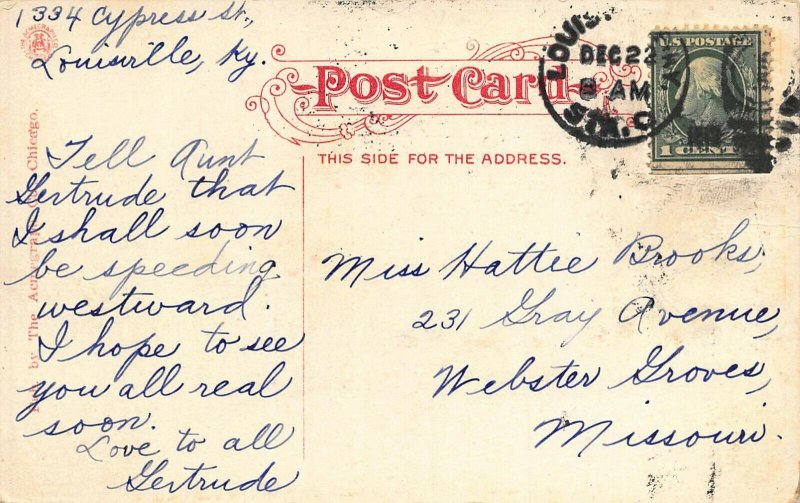 1334 Cypress St.,
Louisville, Ky.
Tell Aunt
Gertrude that
I shall soon
be speeding
westward.
I hope to see
you all real
soon.
Love to all
Gertrude
Post Card
THIS SIDE FOR THE ADDRESS.
DEC 22
8 AM
STA. C
U.S. POSTAGE
1 CENT
Miss Hattie Brooks,
231 Gray Avenue,
Webster Groves,
Missouri.
by The Acmegraph Co. Chicago.